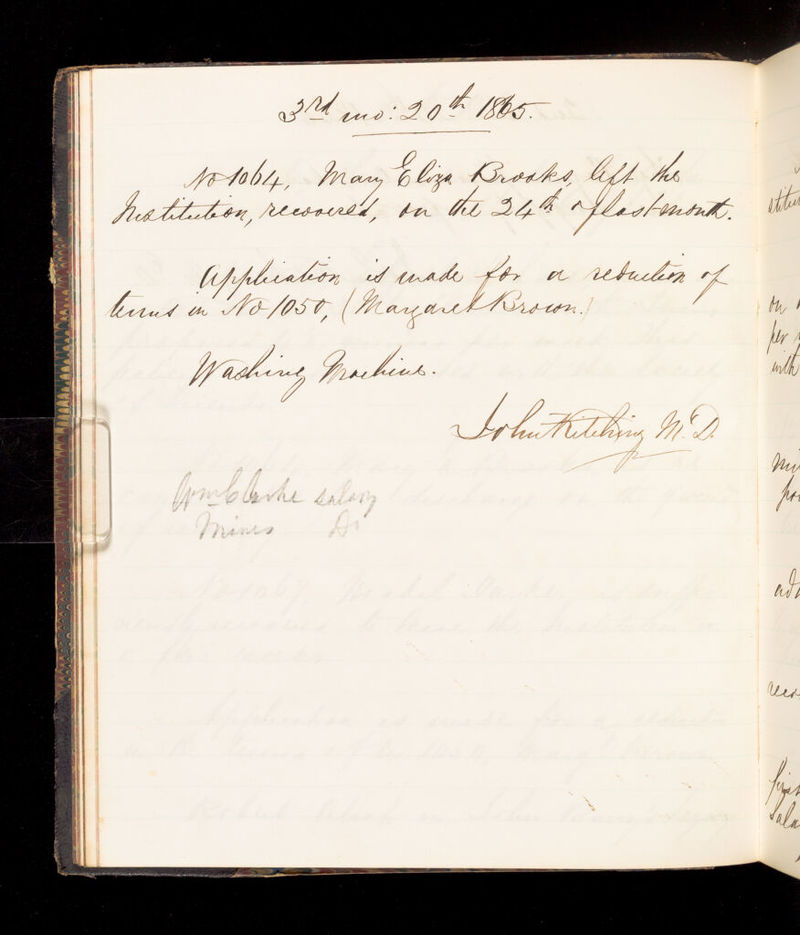 3rd mo: 20th 1865.
No 1064, Mary Eliza Brooks, left the
Institution, recovered, on the 24th of last month.
Application is made for a reduction of
terms in No 1050, (Margaret Brown.)
Washing Machine.
John Kitching M.D.
Wm Clarke salary
Mines Do